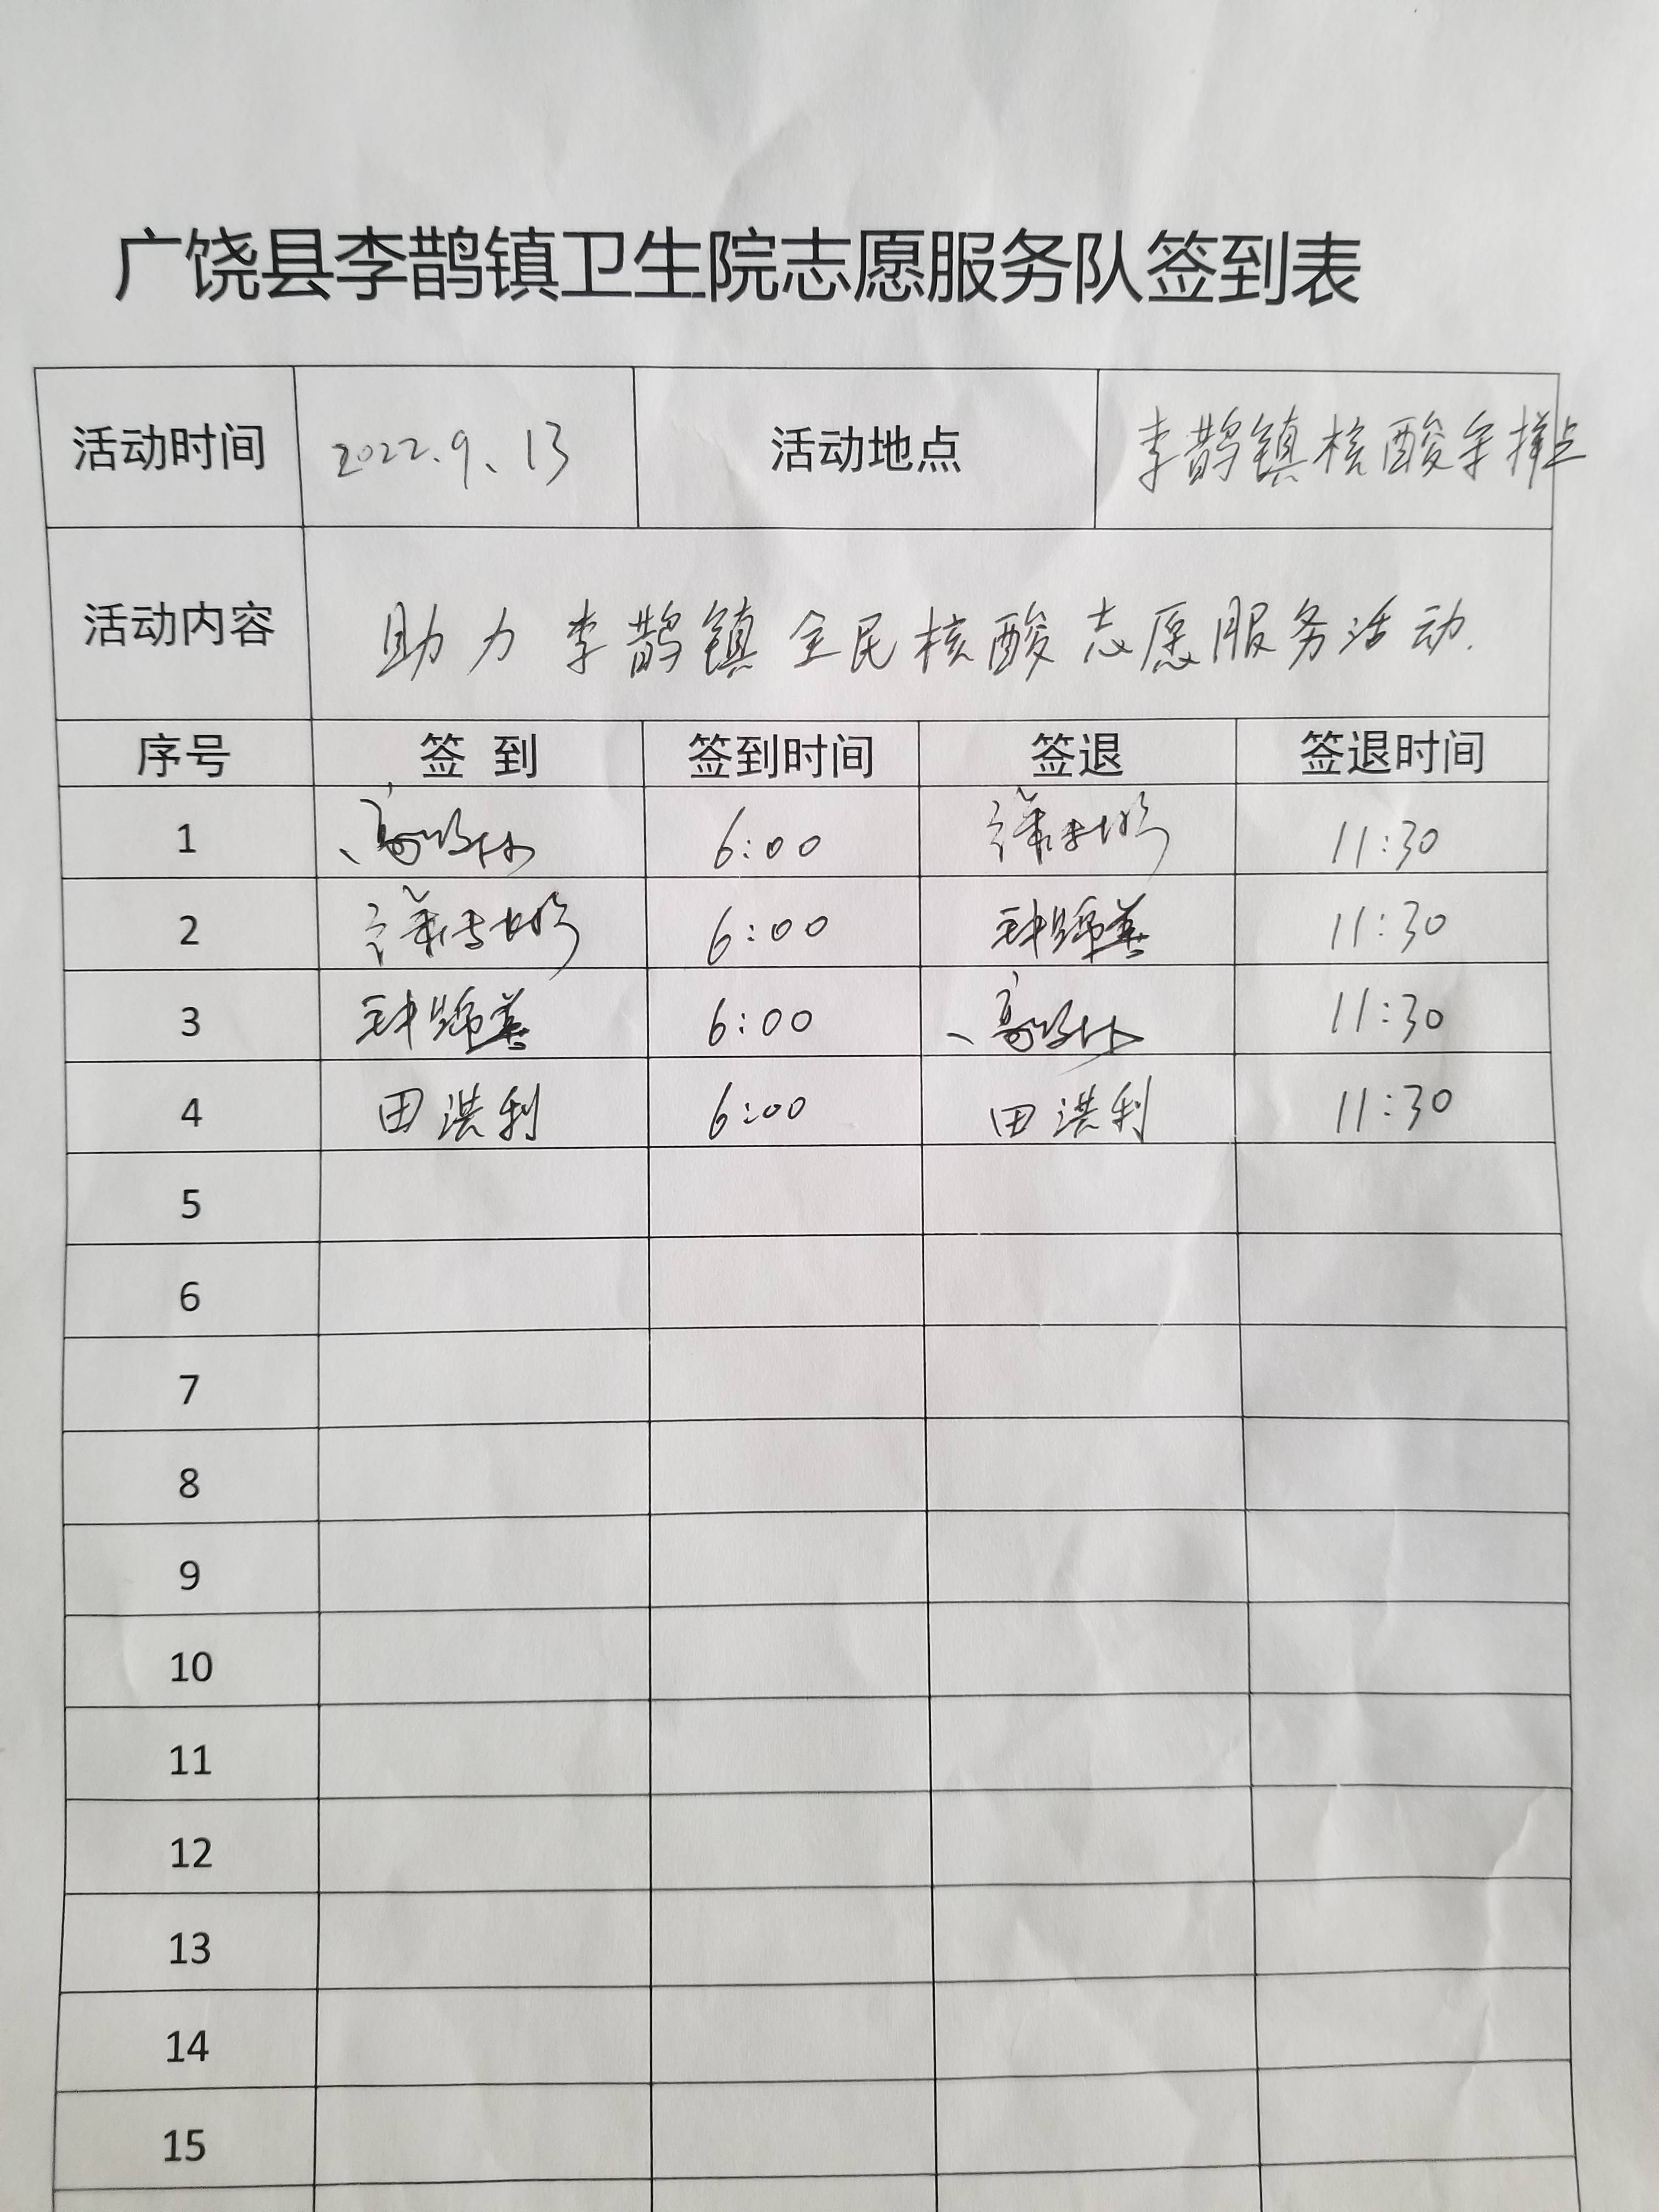 广饶县李鹊镇卫生院志愿服务队签到表
活动时间 2022.9.13 活动地点 李鹊镇核酸采样点
活动内容 助力李鹊镇全民核酸志愿服务活动.
序号 签 到 签到时间 签退 签退时间
1 6:00 11:30
2 6:00 11:30
3 6:00 11:30
4 田洪利 6:00 田洪利 11:30
5
6
7
8
9
10
11
12
13
14
15